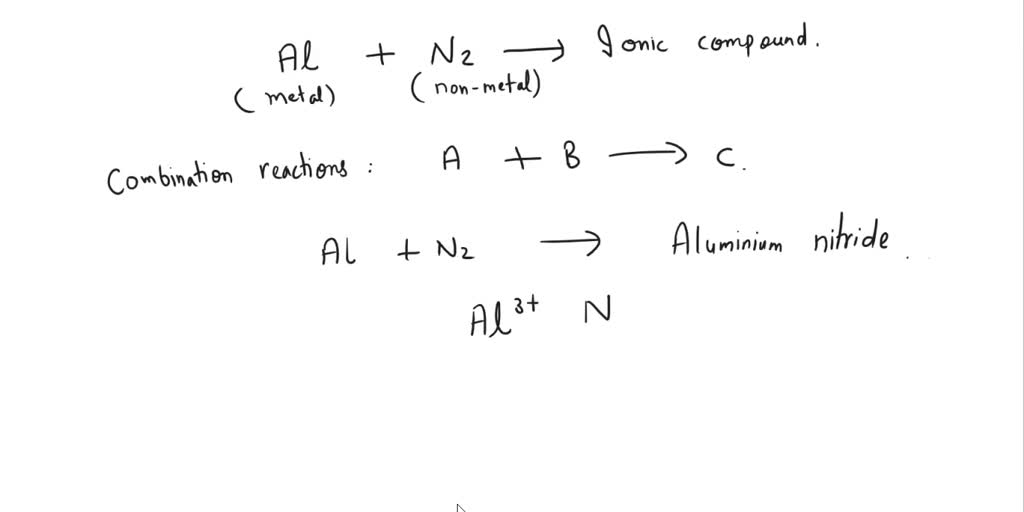 Al + N2 → Ionic compound.
(metal) (non-metal)
Combination reactions : A + B → C.
Al + N2 → Aluminium nitride.
Al³⁺ N